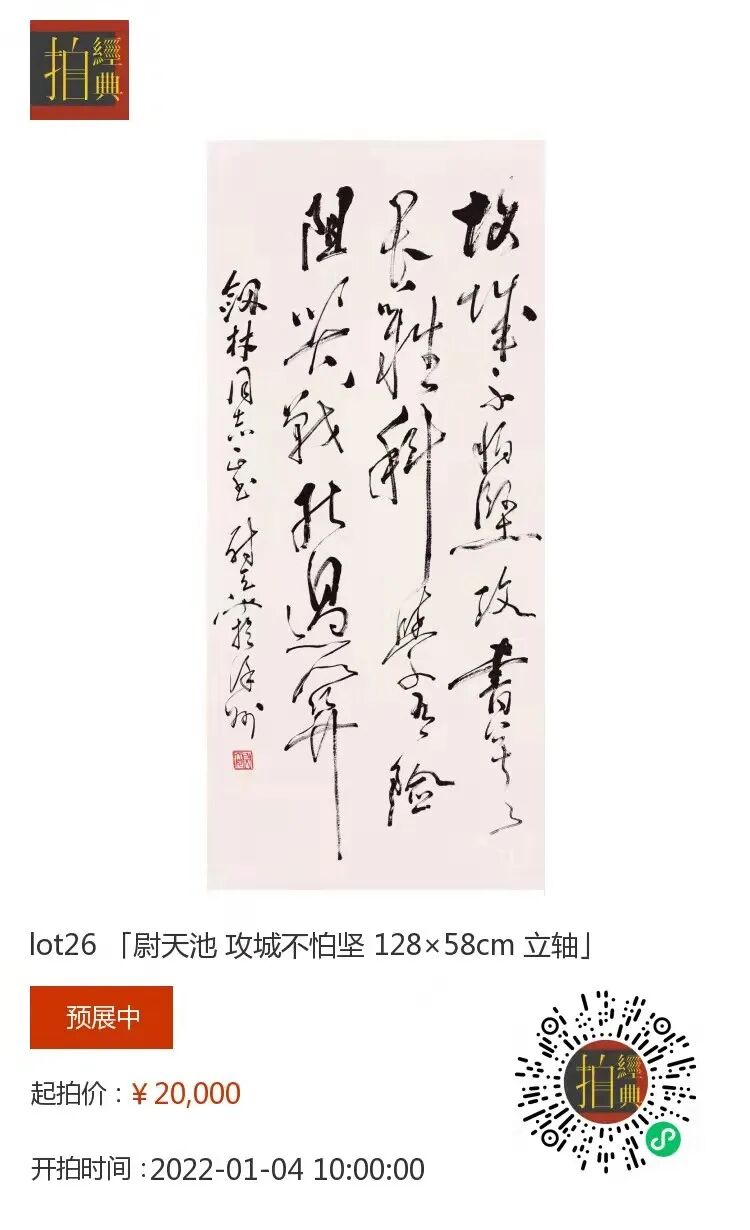 經典
拍
攻城不怕堅攻書莫
畏難科學有險
阻苦戰能過關
劔林同志正 尉天池於徐州
lot26 「尉天池 攻城不怕坚 128×58cm 立轴」
预展中
起拍价：¥20,000
开拍时间：2022-01-04 10:00:00
經典
拍